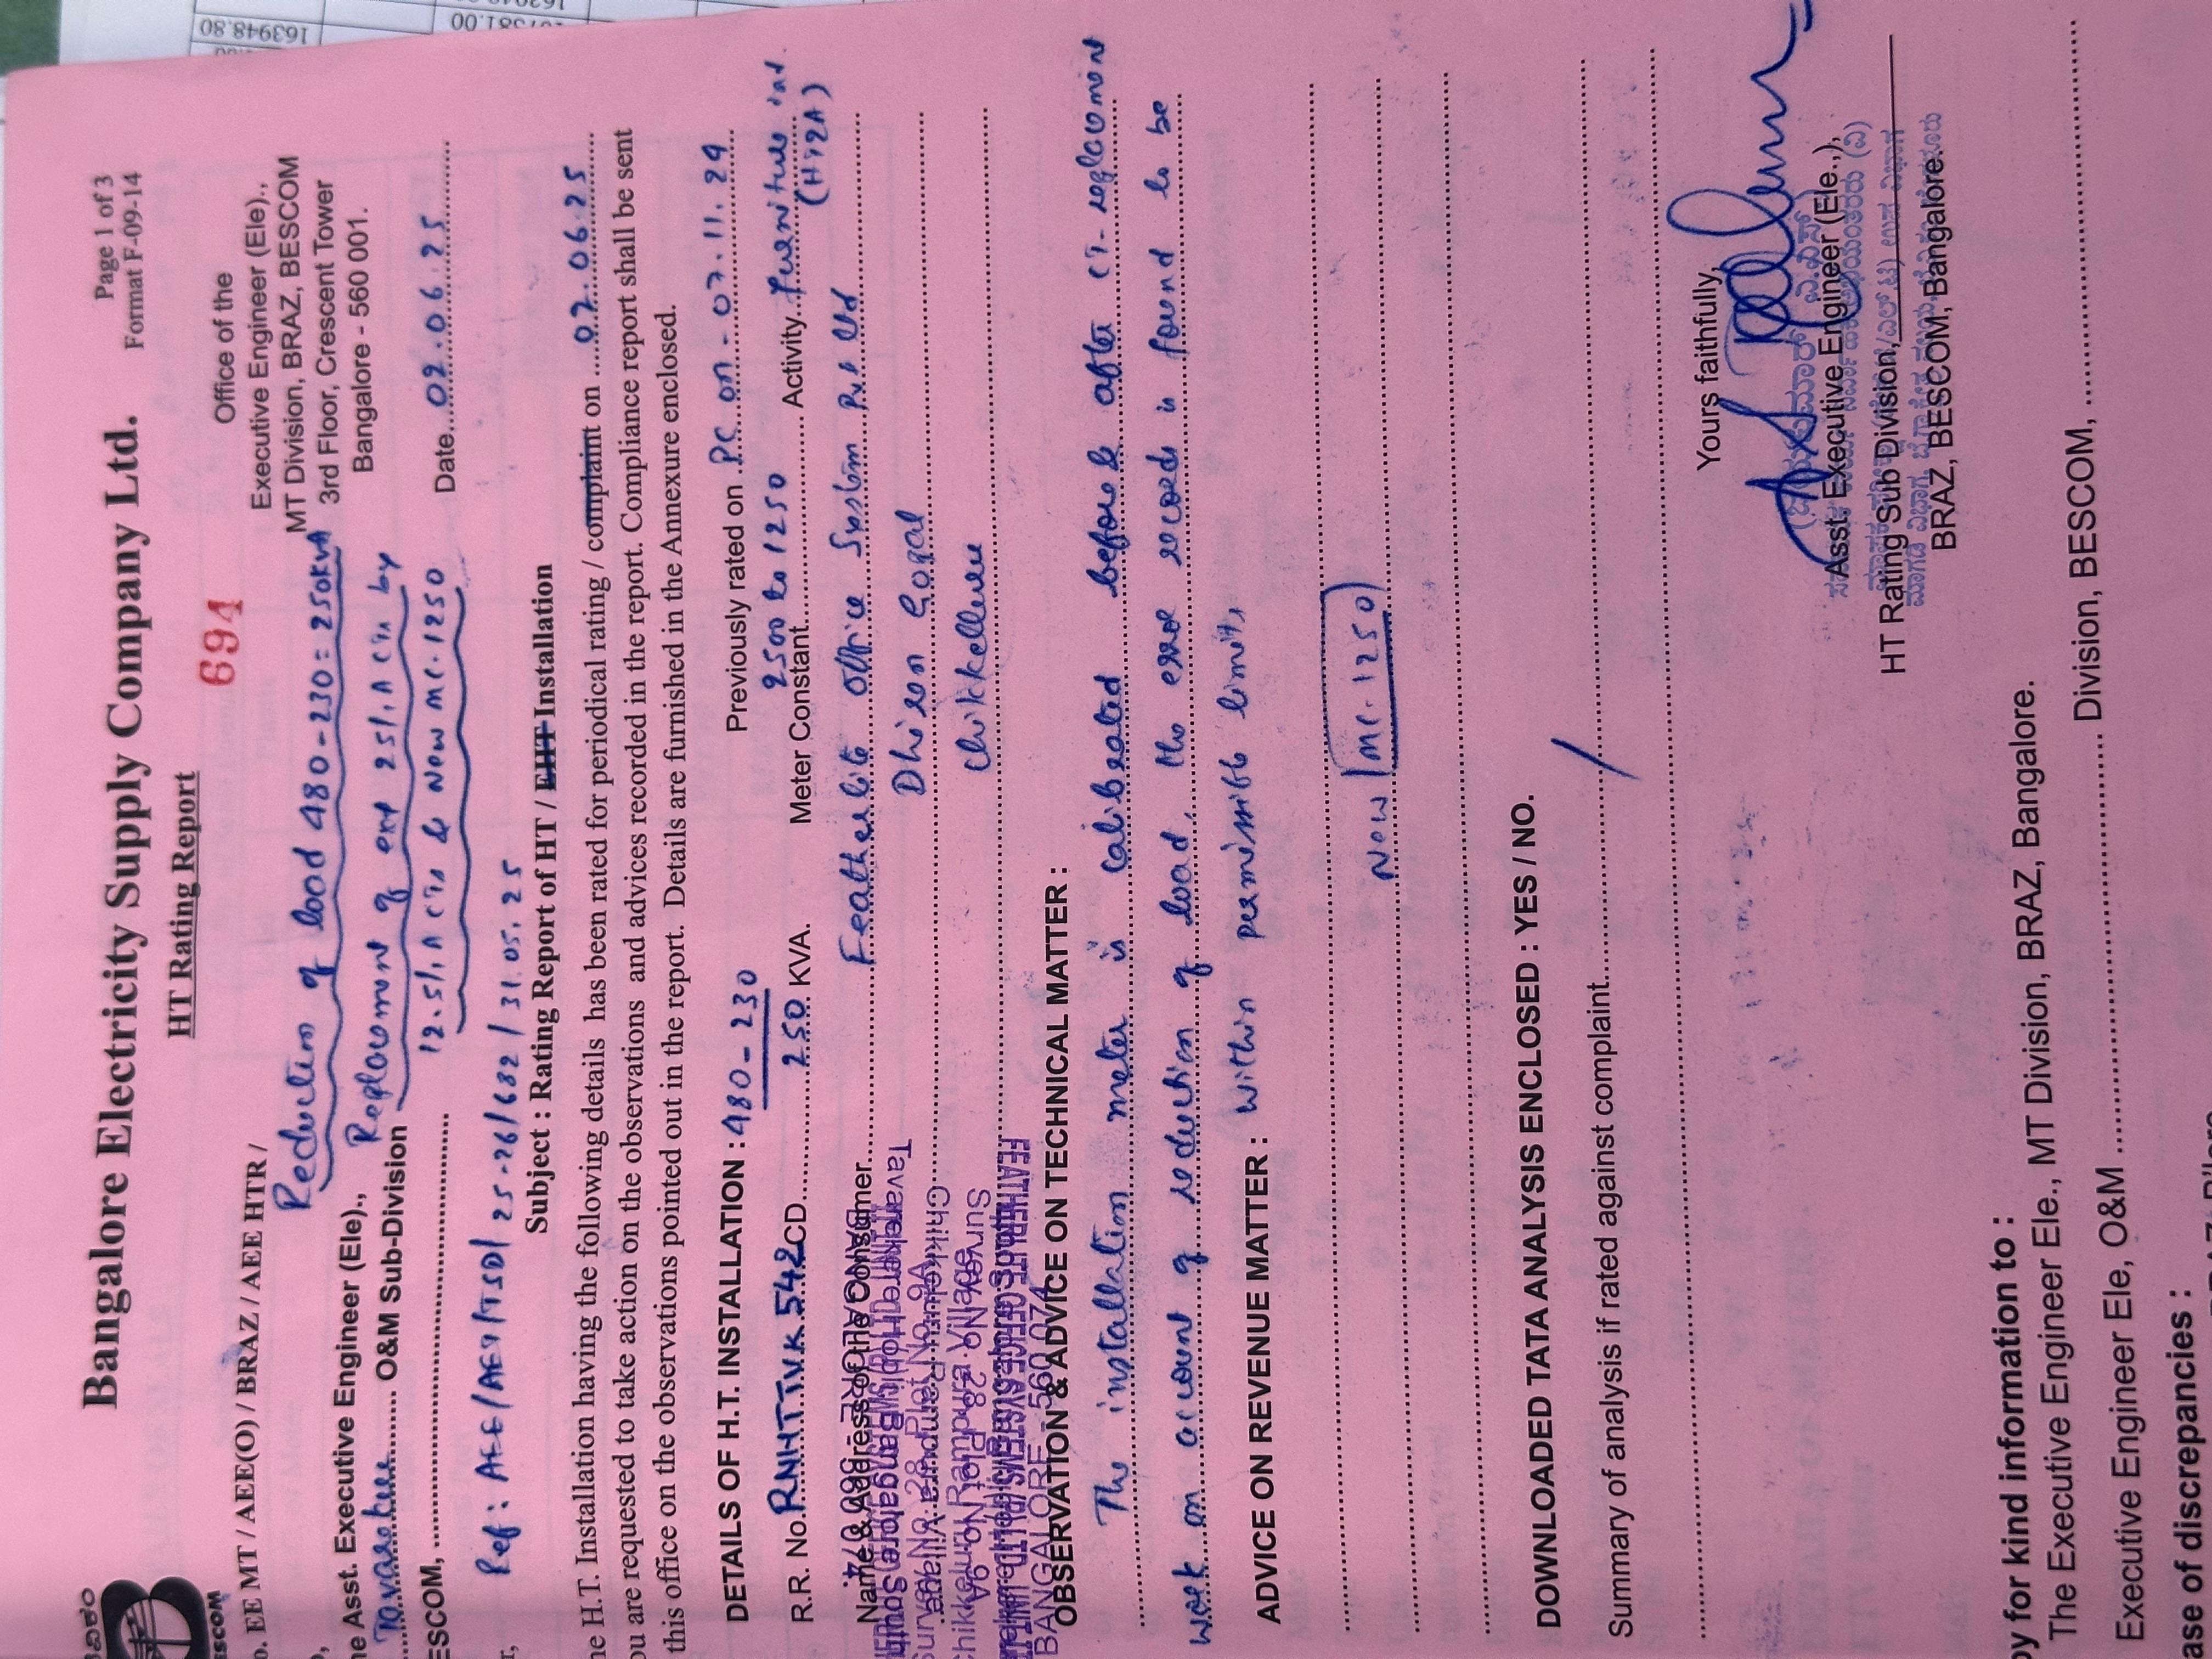 163948.80
Page 1 of 3
Format F-09-14
Bangalore Electricity Supply Company Ltd.
HT Rating Report
694
Office of the
Executive Engineer (Ele).,
MT Division, BRAZ, BESCOM
3rd Floor, Crescent Tower
Bangalore - 560 001.
Date...02.06.25
o. EE MT / AEE(O) / BRAZ / AEE HTR /
Reduction of load 480-230=250KVA
Replacement of ext 25/1A CTs by
12.5/1A CTs & New MC-1250
he Asst. Executive Engineer (Ele).,
Tavarekere O&M Sub-Division
ESCOM,
Ref: AEE/ 25-26/682/31.05.25
Subject : Rating Report of HT / EHT Installation
he H.T. Installation having the following details has been rated for periodical rating / complaint on 02.06.25
ou are requested to take action on the observations and advices recorded in the report. Compliance report shall be sent
this office on the observations pointed out in the report. Details are furnished in the Annexure enclosed.
DETAILS OF H.T. INSTALLATION : 480-230 Previously rated on PC on - 07.11.24
R.R. No. RNHTTVK 542 CD 250 KVA. Meter Constant 2500 to 1250 Activity Furniture ind
(HT2A)
Name & Address of the Consumer Featherlite Office System Pvt Ltd
Dhiren Gopal
Chikkelluru
BANGALORE 560 074
OBSERVATION & ADVICE ON TECHNICAL MATTER :
The installation meter is calibrated before & after CT-replacement
work on account of reduction of load, the error records is found to be
ADVICE ON REVENUE MATTER : within permissible limits,
New MC-1250
DOWNLOADED TATA ANALYSIS ENCLOSED : YES / NO.
Summary of analysis if rated against complaint
Yours faithfully,
Asst. Executive Engineer (Ele.,),
HT Rating Sub Division,
BRAZ, BESCOM, Bangalore.
py for kind information to :
The Executive Engineer Ele., MT Division, BRAZ, Bangalore.
Executive Engineer Ele, O&M Division, BESCOM,
ase of discrepancies :